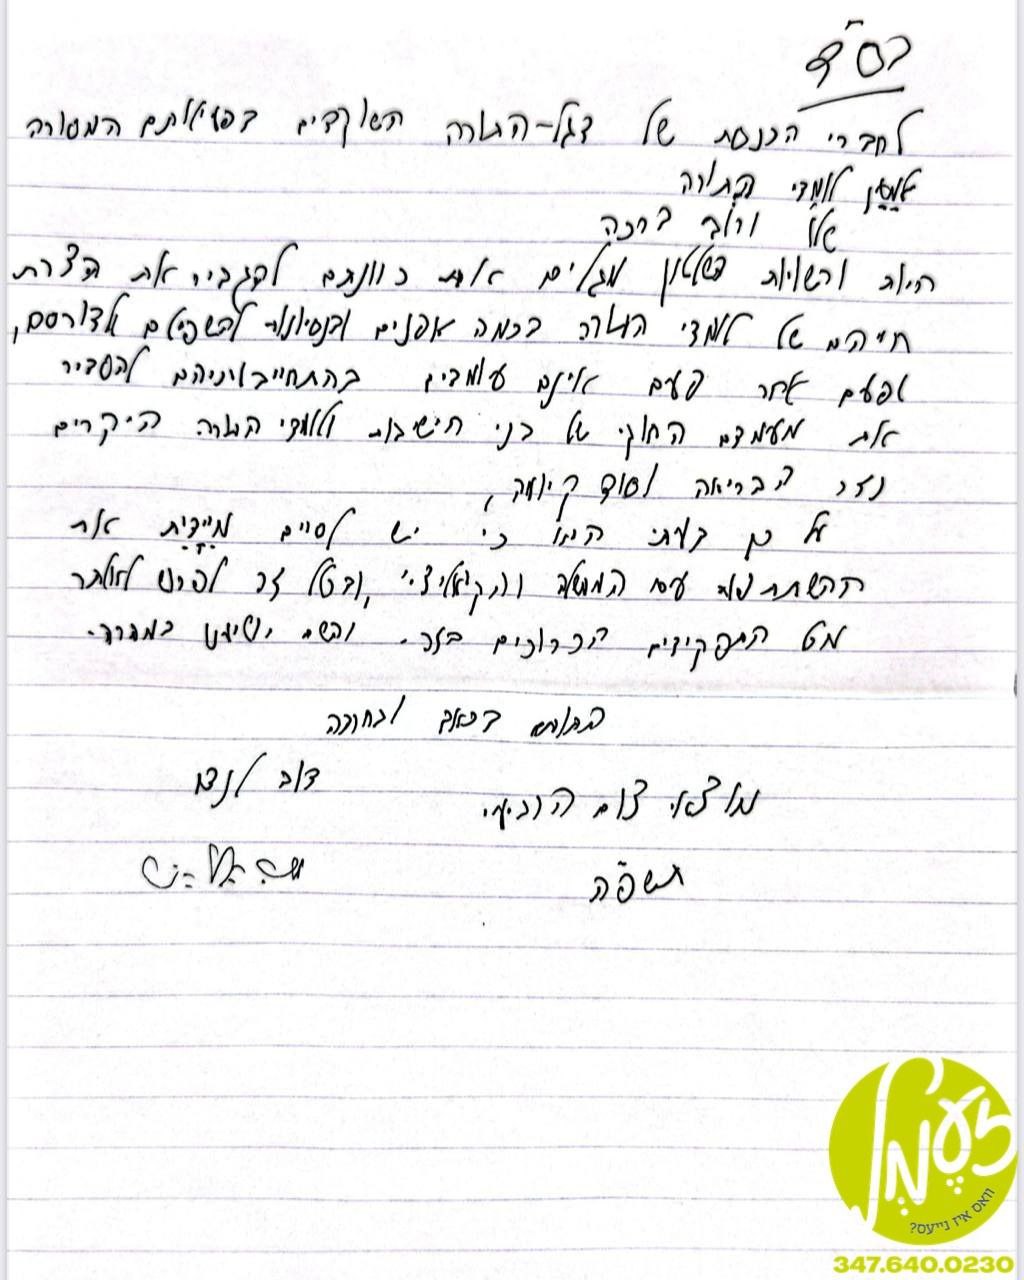 בס"ד
לחברי הכנסת של דגל-התורה השוקדים בפעילותם המסורה
למען לומדי התורה
שלו' ורוב ברכה
היות ורשויות השלטון מגלים את כוונתם להגביר את הצרת
חייהם של לומדי התורה בכמה אפנים ובנסיונות להשפילם לדורסם,
ופעם אחר פעם אינם עומדים בהתחייבויותיהם להסדיר
את מעמדם החוקי של בני הישיבות ולומדי התורה היקרים
נזר הבריאה וסוד קיומה,
על כן דעתי היא כי יש לסיים מיידית את
ההשתתפות עם הממשלה והקואליציה, ובכלל זה לפרוש לאלתר
מכל התפקידים הכרוכים בזה. והשם יושיענו במהרה.
החותם בכאב ובתקוה
דוב לנדו
מוצאי צום הרביעי
תשפ"ה
זעמל
וואס איז נייעס?
347.640.0230